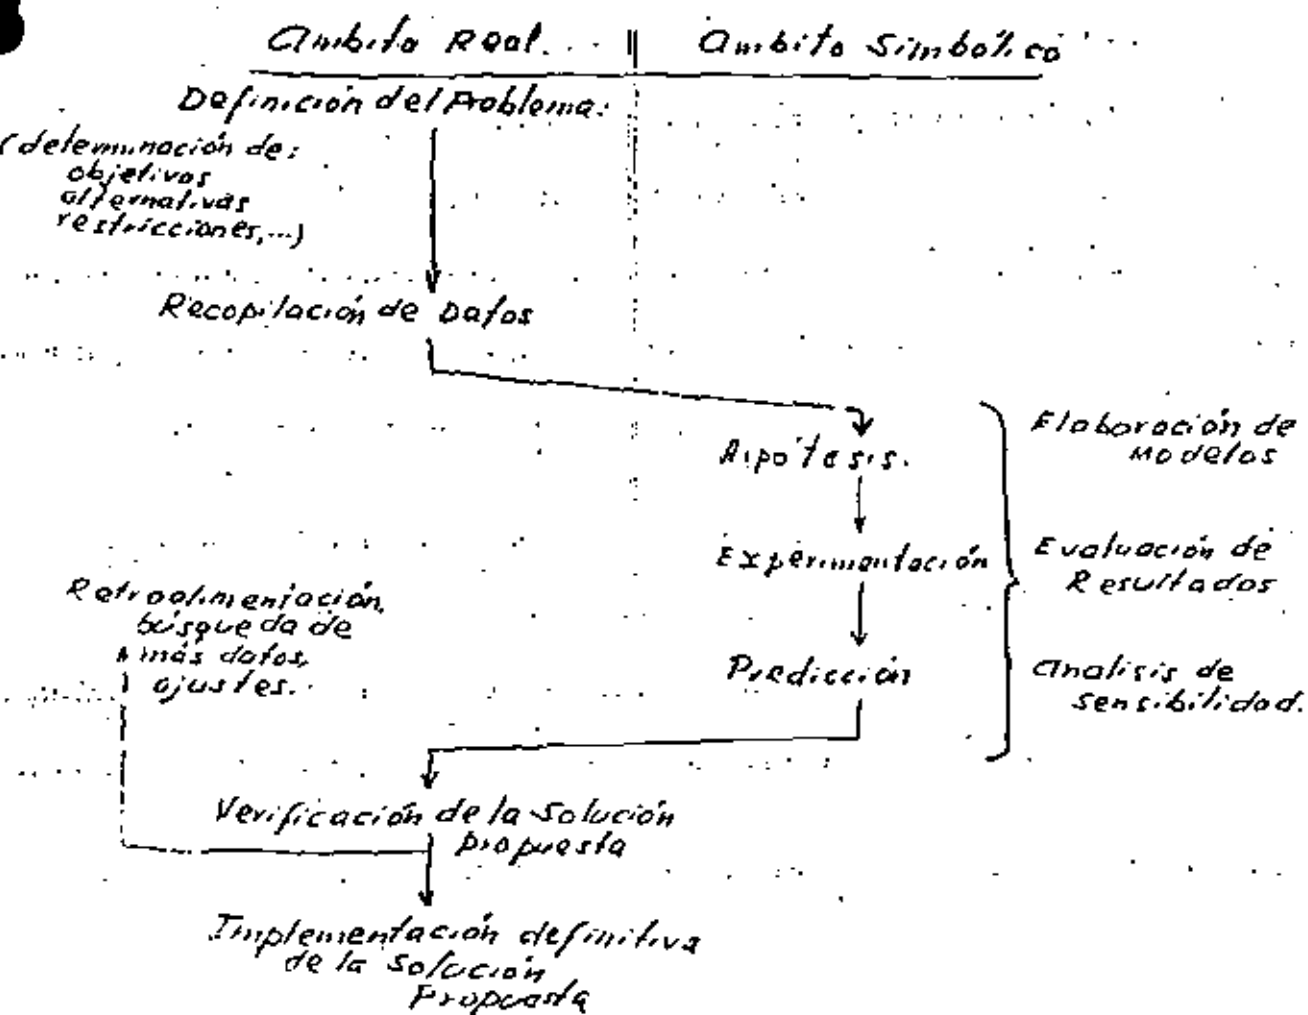 Ambito Real. Ambito Simbólico
Definición del Problema:
(determinación de:
objetivos
alternativas
restricciones,...)
Recopilación de Datos
Hipótesis.
Experimentación
Predicción
Elaboración de
Modelos
Evaluación de
Resultados
Analisis de
Sensibilidad.
Retroalimentación,
búsqueda de
más datos,
ajustes.
Verificación de la Solución
propuesta
Implementación definitiva
de la Solución
Propuesta